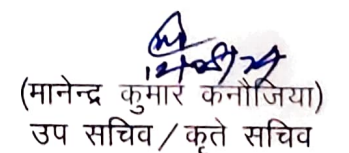 (मानेन्द्र कुमार कनौजिया)
उप सचिव / कृते सचिव